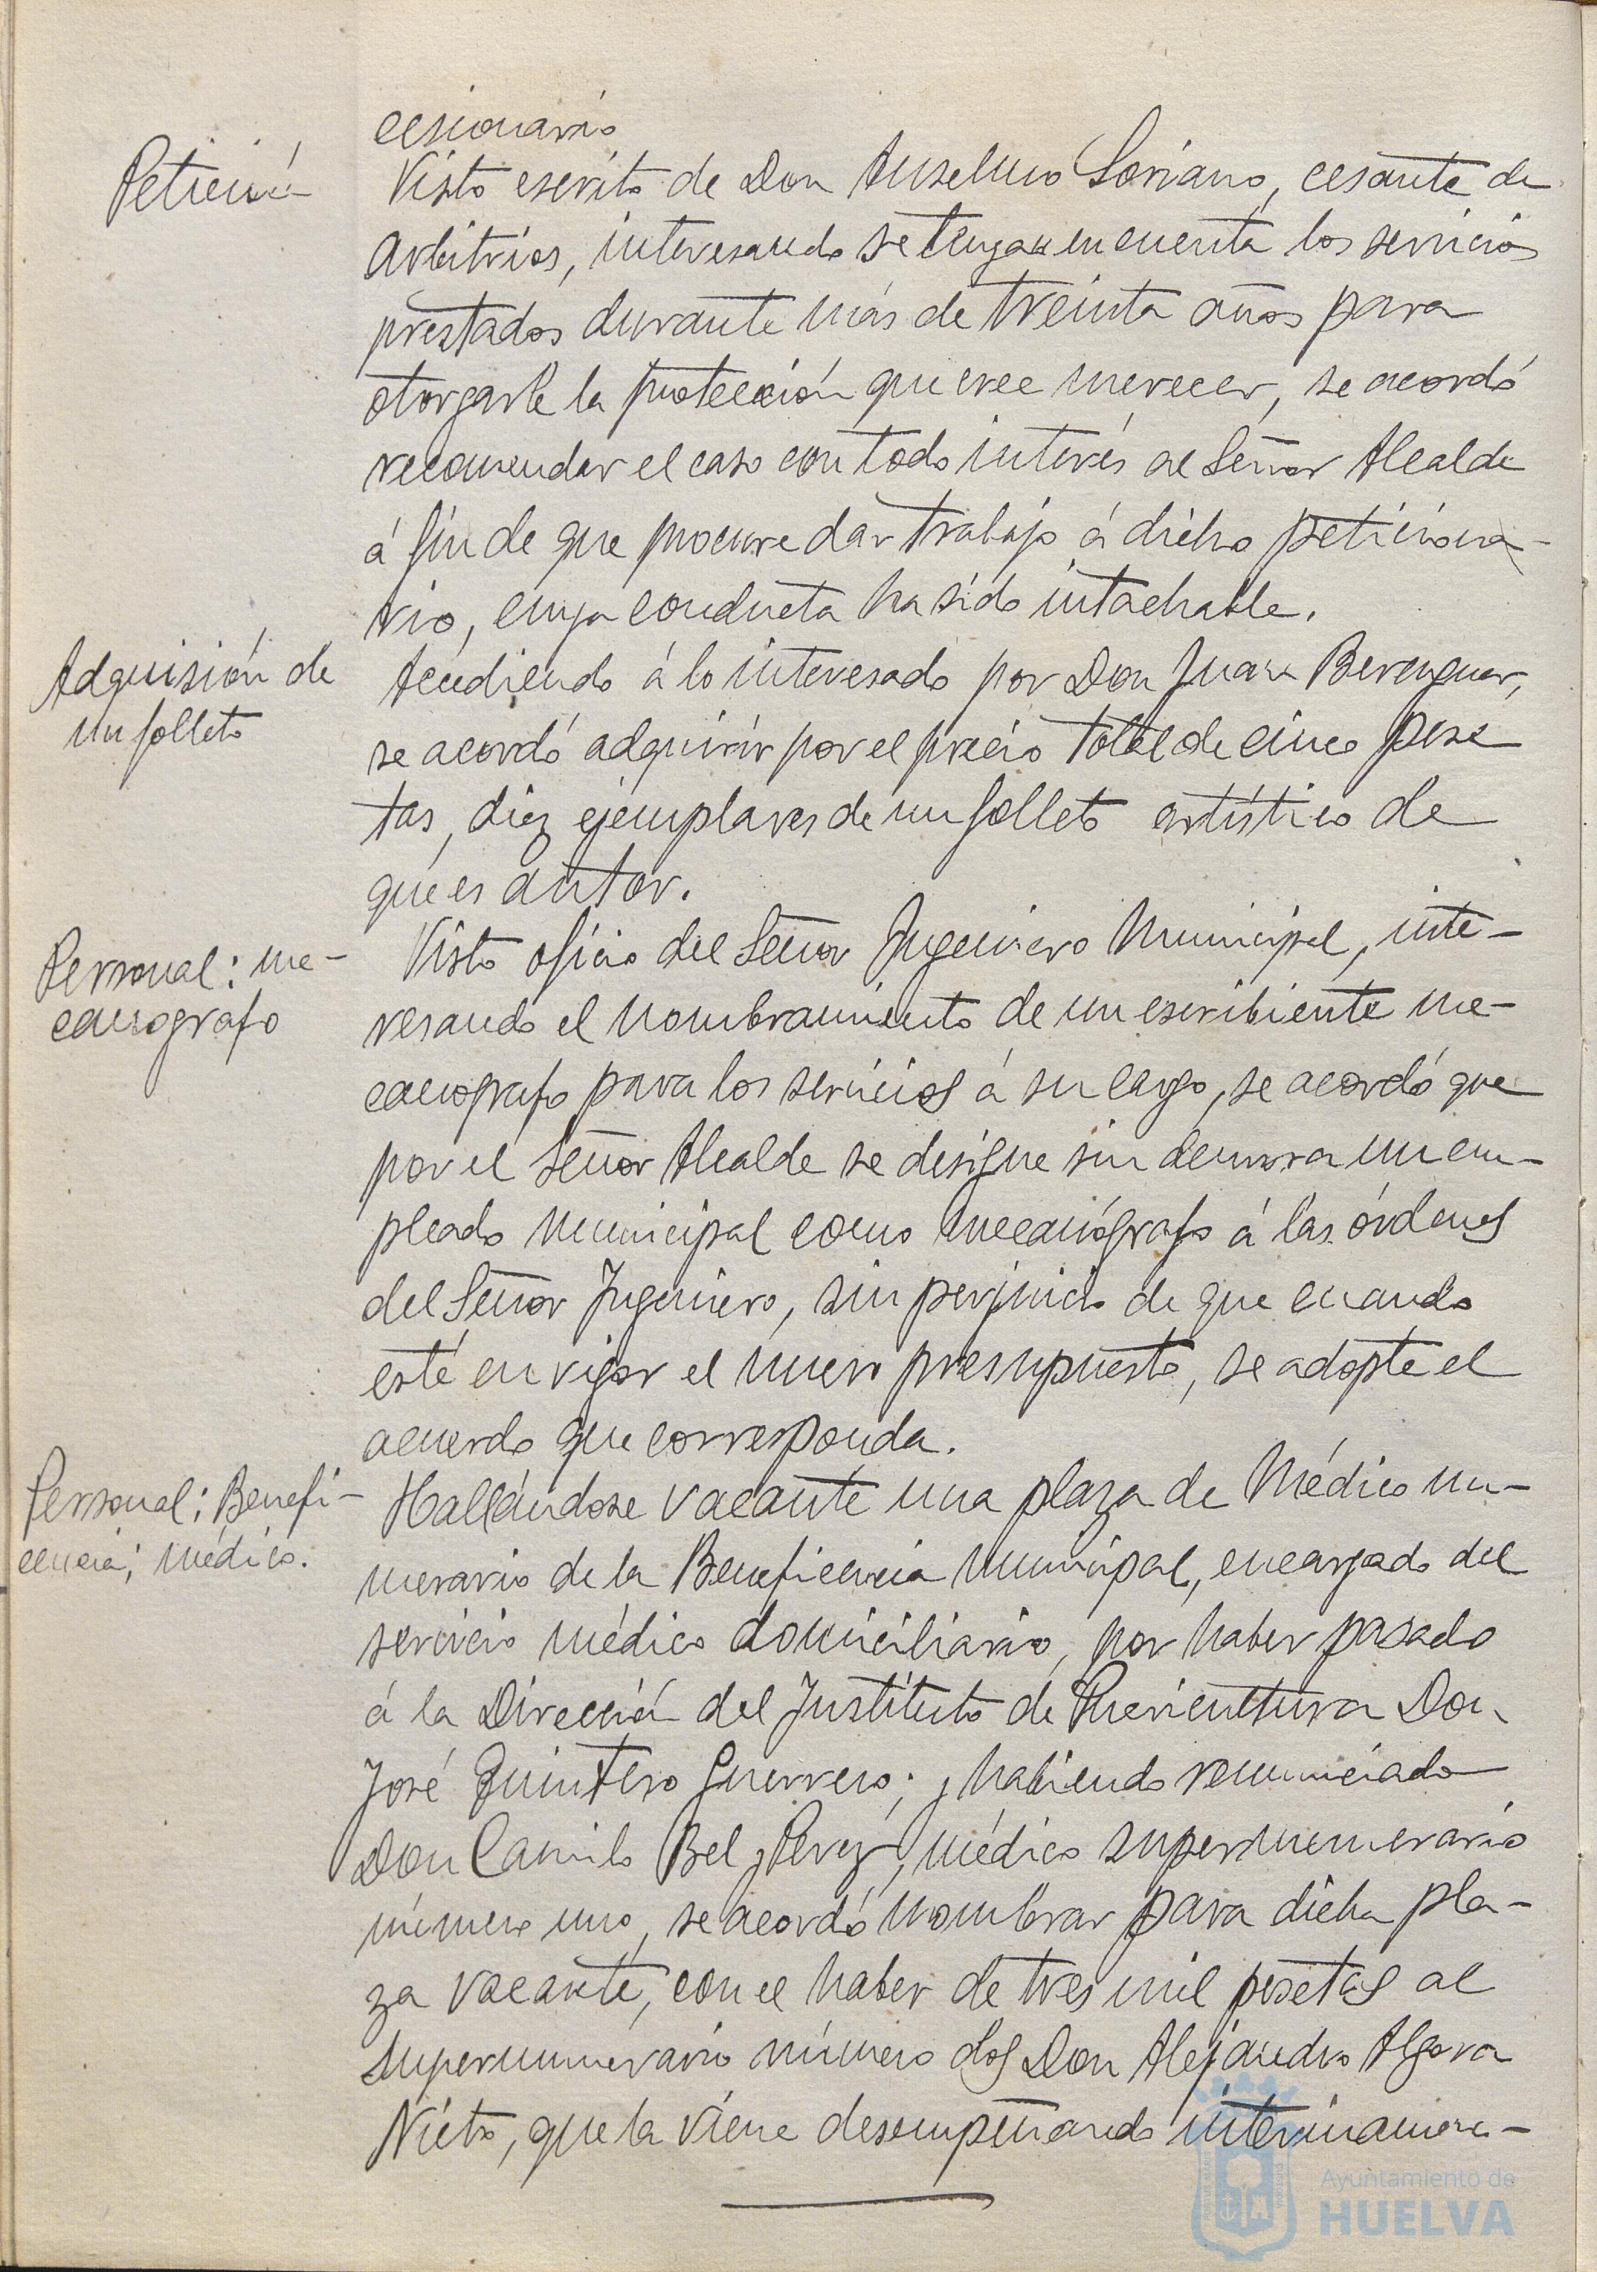 cesionario
Petición
Visto escrito de Don Anselmo Soriano, cesante de
arbitrios, interesando se tengan en cuenta los servicios
prestados durante más de treinta años para
otorgarle la protección que cree merecer, se acordó
recomendar el caso con todo interés al Señor Alcalde
á fin de que procure dar trabajo á dicho peticiona-
rio, cuya conducta ha sido intachable.
Adquisión de
un folleto
Acediendo á lo interesado por Don Juan Berenguer,
se acordó adquirir por el precio total de cinco pese
tas, diez ejemplares de un folleto artístico de
que es autor.
Personal: me-
canografo
Visto oficio del Señor Ingeniero Municipal, inte-
resando el nombramiento de un escribiente me-
canografo para los servicios á su cargo, se acordó que
por el Señor Alcalde se designe sin demora un em-
pleado municipal como mecanógrafo á las órdenes
del Señor Ingeniero, sin perjuicio de que cuando
esté en vigor el nuevo presupuesto, se adopte el
acuerdo que corresponda.
Personal; Benefi-
cencia; médico.
Hallándose vacante una plaza de Médico nu-
merario de la Beneficencia municipal, encargado del
servicio médico domiciliario, por haber pasado
á la Dirección del Instituto de Puericultura Don
José Quintero Guerrero; y habiendo renunciado
Don Camilo Bel y Perez, médico supernumerario
número uno, se acordó nombrar para dicha pla-
za vacante, con el haber de tres mil pesetas al
supernumerario número dos Don Alejandro Algora
Nieto, que la viene desempeñando interinamen-
Ayuntamiento de
HUELVA